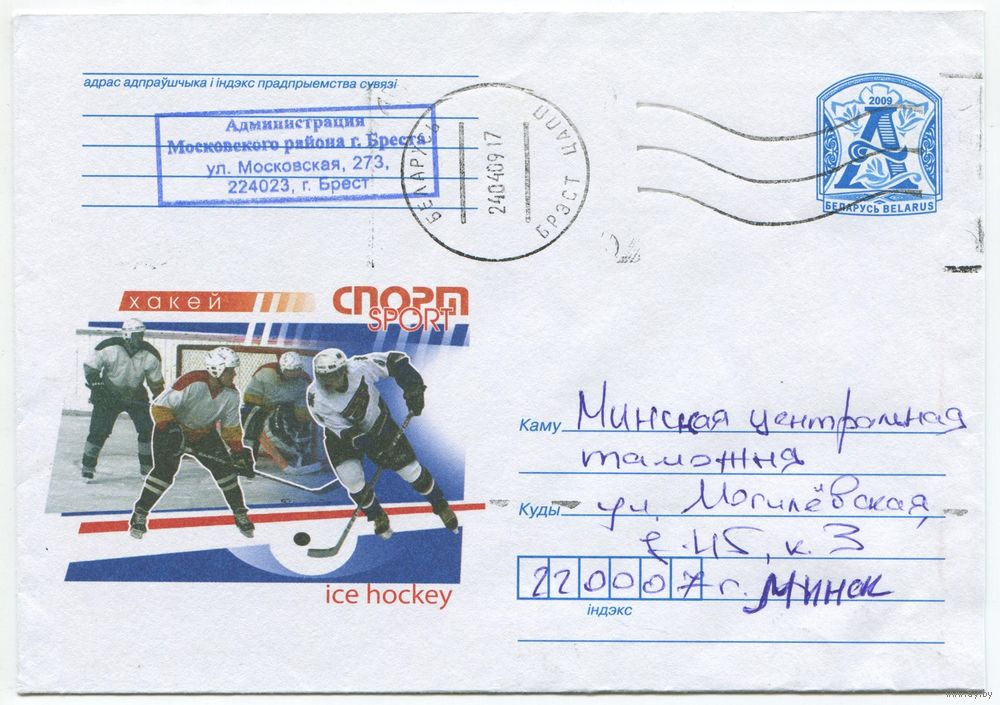 адрас адпраўшчыка і індэкс прадпрыемства сувязі
Администрация
Московского района г. Бреста
ул. Московская, 273,
224023, г. Брест
БЕЛАРУСЬ
240409 17
БРЭСТ ЦАПП
2009
А
БЕЛАРУСЬ BELARUS
хакей
СПОРТ
SPORT
ice hockey
Каму Минская центральная
таможня
Куды ул. Могилёвская,
д. 45, к. 3
220007 г. Минск
індэкс
www.ay.by